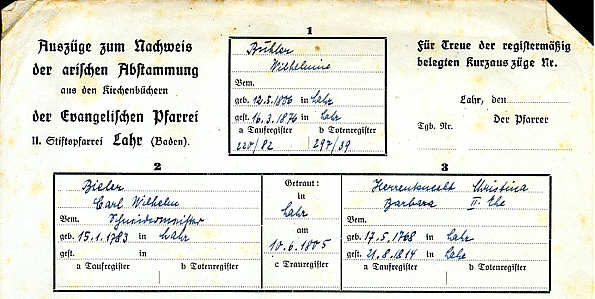 Auszüge zum Nachweis
der arischen Abstammung
aus den Kirchenbüchern
der Evangelischen Pfarrei
II. Stiftspfarrei Lahr (Baden).
1
Bühler
Wilhelmine
Bem.
geb. 12.5.1806 in Lahr
gest. 16.3.1876 in Lahr
a Taufregister b Totenregister
220/82 297/39
Für Treue der registermäßig
belegten Kurzauszüge Nr.
Lahr, den
Tgb. Nr. Der Pfarrer
2
Bieler
Carl Wilhelm
Bem. Schneidermeister
geb. 15.1.1783 in Lahr
gest. in
a Taufregister b Totenregister
Getraut:
in
Lahr
am
10.6.1805
c Trauregister
3
Herrenknecht Christina
Barbara II. Ehe
Bem.
geb. 17.5.1768 in Lahr
gest. 21.8.1814 in Lahr
a Taufregister b Totenregister